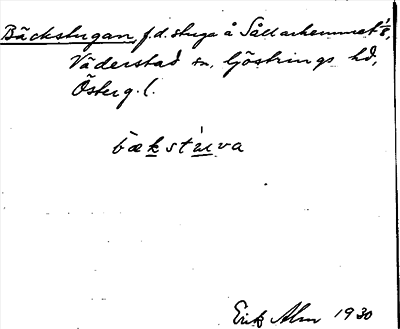 Bäckstugan, f.d. stuga å Sållarhemmet 1/8,
Väderstad sn, Göstrings hd,
Österg. l.
bækstúva
Erik Alm 1930